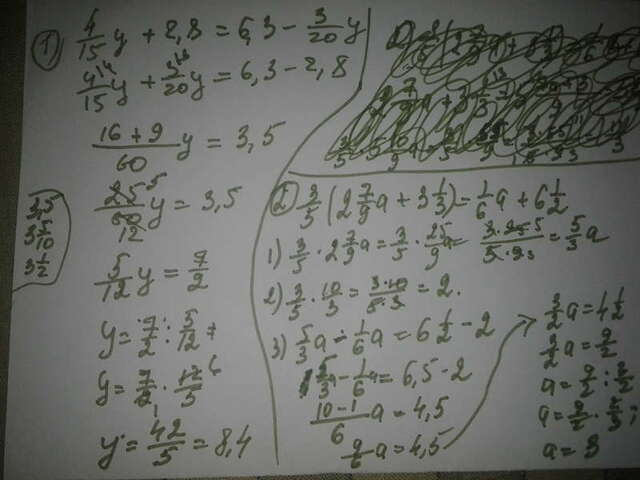 1) 4/15 y + 2,8 = 6,3 - 3/20 y
4/15 y + 3/20 y = 6,3 - 2,8
(16 + 9)/60 y = 3,5
25/60 y = 3,5
5/12 y = 7/2
y = 7/2 : 5/12
y = 7/2 · 12/5
y = 42/5 = 8,4
3,5
3 5/10
3 1/2
2) 3/5 (2 7/9 a + 3 1/3) = 1/6 a + 6 1/2
1) 3/5 · 2 7/9 a = 3/5 · 25/9 a = = 5/3 a
2) 3/5 · 10/3 = (3·10)/(5·3) = 2.
3) 5/3 a - 1/6 a = 6 1/2 - 2
5/3 a - 1/6 a = 6,5 - 2
(10 - 1)/6 a = 4,5
9/6 a = 4,5
3/2 a = 4 1/2
3/2 a = 9/2
a = 9/2 : 3/2
a = 9/2 · 2/3;
a = 3